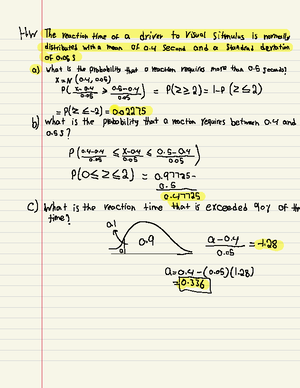 HW The reaction time of a driver to visual stimulus is normally
distributed with a mean of 0.4 second and a standard deviation
of 0.05 s
a) What is the probability that a reaction requires more than 0.5 seconds?
X=N (0.4, 0.05)
P( X-0.4/0.05 ≥ 0.5-0.4/0.05 ) = P(Z≥2) = 1-P(Z≤2)
= P(Z ≤ -2) = 0.02275
b) What is the probability that a reaction requires between 0.4 and
0.5 s?
P ( 0.4-0.4/0.05 ≤ X-0.4/0.05 ≤ 0.5-0.4/0.05 )
P(0≤Z≤2) = 0.97725-
0.5
0.47725
C) What is the reaction time that is exceeded 90% of the
time?
0.1
0.9
a-0.4/0.05 = -1.28
a=0.4-(0.05)(1.28)
=0.336